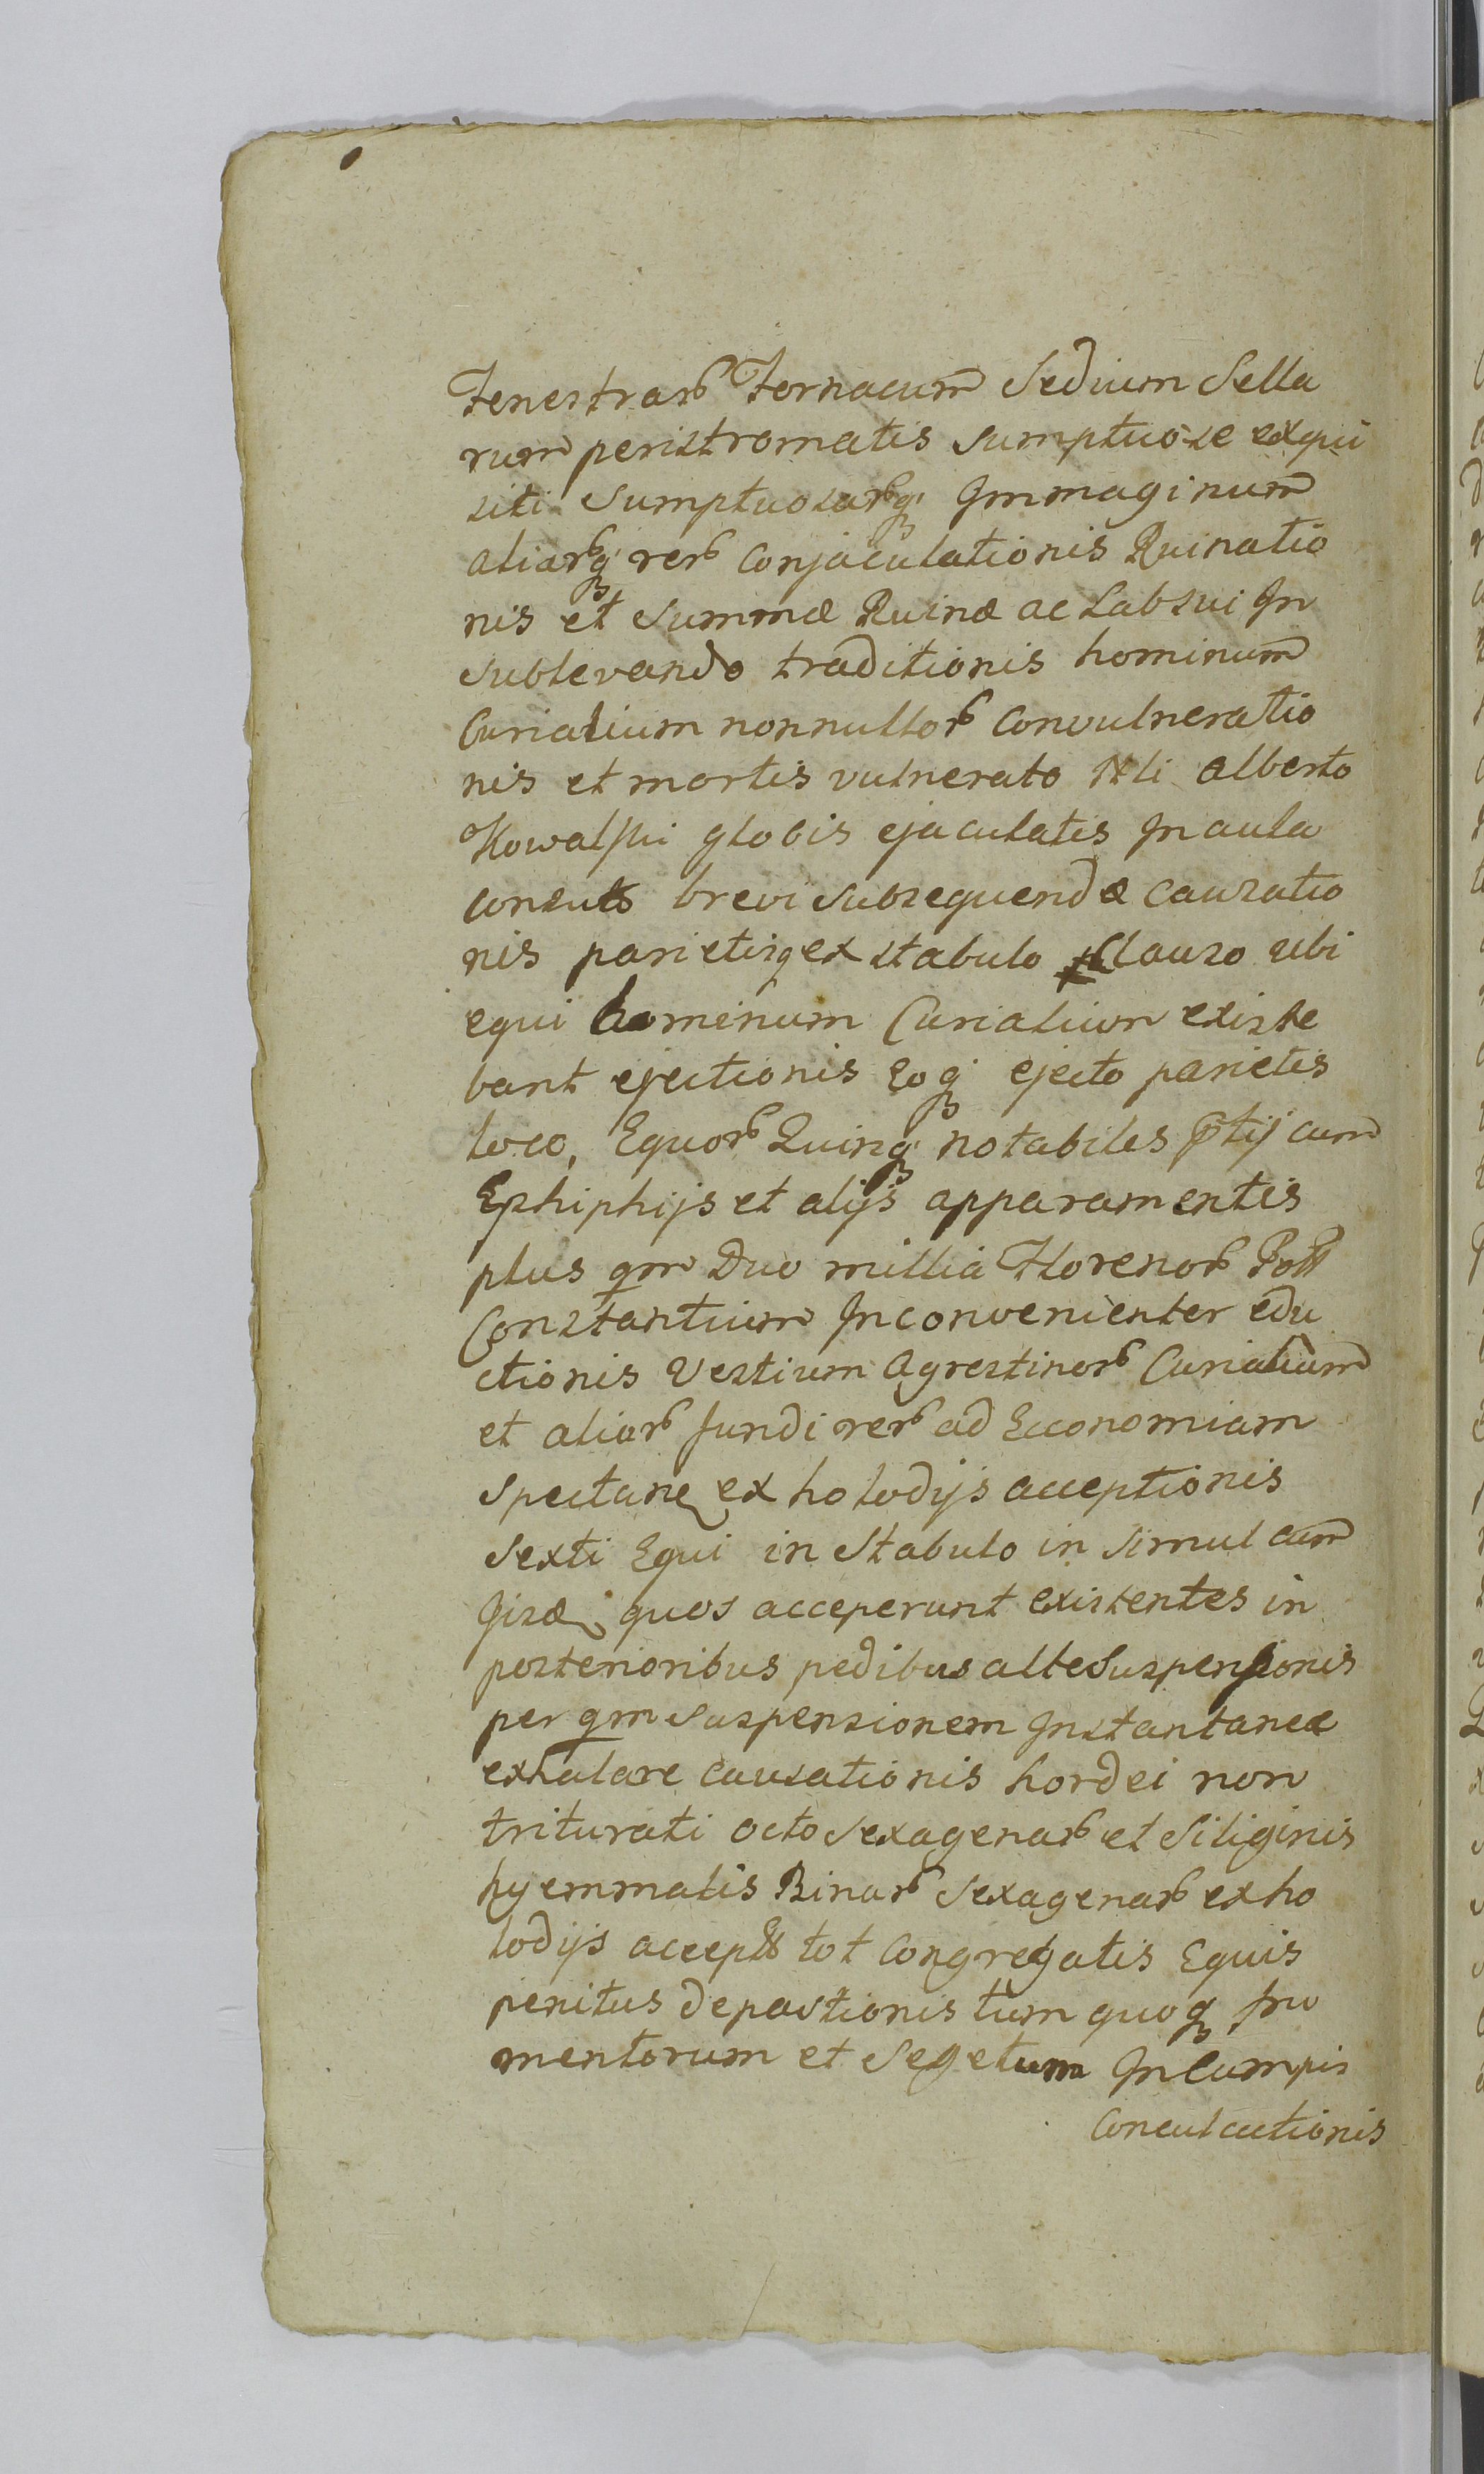 Fenestraꝝ Fornacum Sedium Sella
rum peristromatis sumptuose exqui
siti Sumptuosaꝝq Immaginum
aliaꝝq reꝝ Conjaculationis Ruinatio
nis et Summæ Ruinæ ac Labsui In
sublevando traditionis hominum
Curialium nonnulloꝝ Convulneratio
nis et mortis vulnerato Nli Alberto
Kowalski globis ejaculatis In aula
brevi subsequendæ Causatio
nis parietisq ex stabulo Clauso ubi
equi hominum Curialium existe
bant ejectionis Eoq ejecto parietis
loco, Equoꝝ Quinq notabiles ptij cum
Ephiphijs et alijs apparamentis
plus qm Duo millia Florenoꝝ Poll
Constantium Inconvenienter edu
ctionis Vestium Agrestinoꝝ Curialium
et aliaꝝ fundi reꝝ ad Economiam
Spectan ex holodijs acceptionis
Sexti Equi in Stabulo in simul cum
quos acceperunt existentes in
posterioribus pedibus alte Suspensionis
per qm Suspensionem Instantanee
exhalare causationis hordei non
triturati octo Sexagenaꝝ et Siliginis
hyemmalis Binaꝝ Sexagenaꝝ ex ho
lodijs accept tot Congregatis Equis
penitus depastionis tum quoq fru
mentorum et Segetum In Campis
Conculcationis